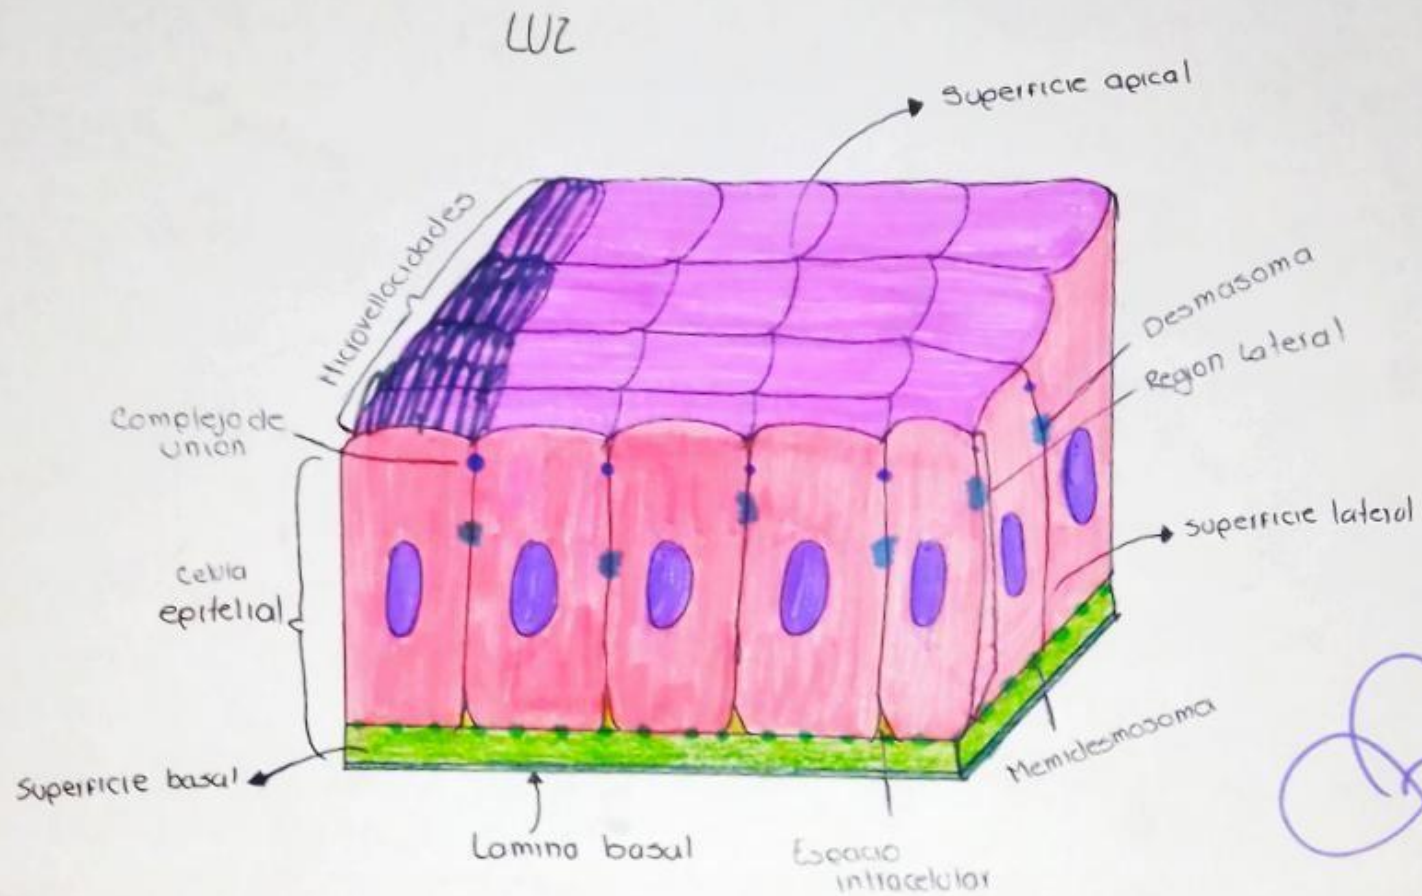 LUZ
Superficie apical
Microvellocidades
Desmasoma
Region Lateral
Complejo de
Union
Superficie lateral
Celula
epitelial
Memidesmosoma
Superficie basal
Lamina basal
Espacio
intracelular